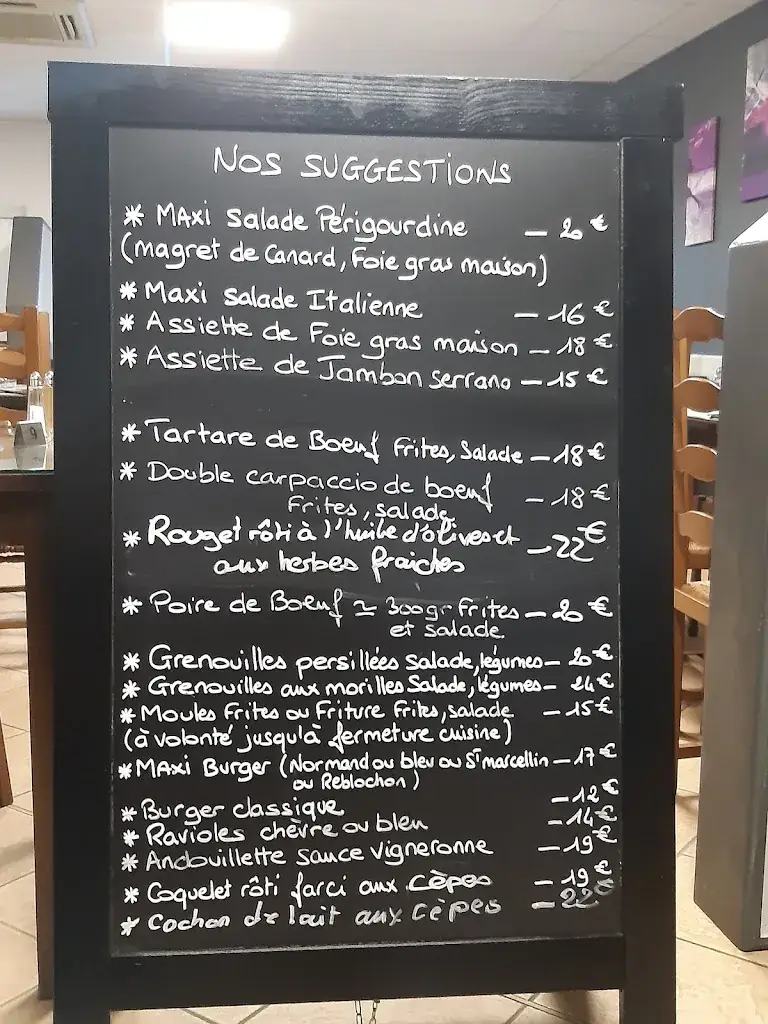 NOS SUGGESTIONS
* MAxi Salade Périgourdine — 20 €
(magret de Canard, Foie gras maison)
* Maxi Salade Italienne — 16 €
* Assiette de Foie gras maison — 18 €
* Assiette de Jambon Serrano — 15 €
* Tartare de Boeuf Frites, Salade — 18 €
* Double carpaccio de boeuf — 18 €
Frites, salade
* Rouget rôti à l'huile d'olives et — 22 €
aux herbes fraiches
* Poire de Boeuf ≃ 300gr Frites — 20 €
et salade
* Grenouilles persillées Salade, légumes — 20 €
* Grenouilles aux morilles Salade, légumes — 24 €
* Moules Frites ou Friture Frites, salade — 15 €
(à volonté jusqu'à fermeture cuisine)
* MAXI Burger (Normand ou bleu ou St marcellin — 17 €
ou Reblochon)
* Burger classique — 12 €
* Ravioles chèvre ou bleu — 14 €
* Andouillette sauce vigneronne — 19 €
* Coquelet rôti farci aux cèpes — 19 €
* Cochon de lait aux cèpes — 22 €
9